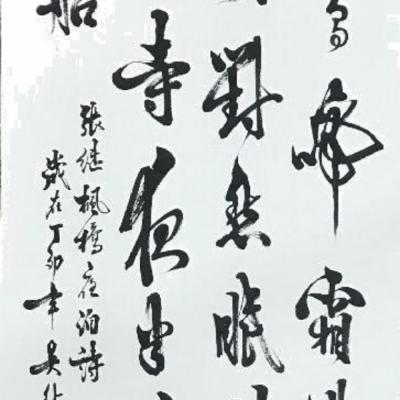 烏啼霜
對愁眠
寺夜半
船
張继楓橋夜泊詩
歲在丁卯年吴